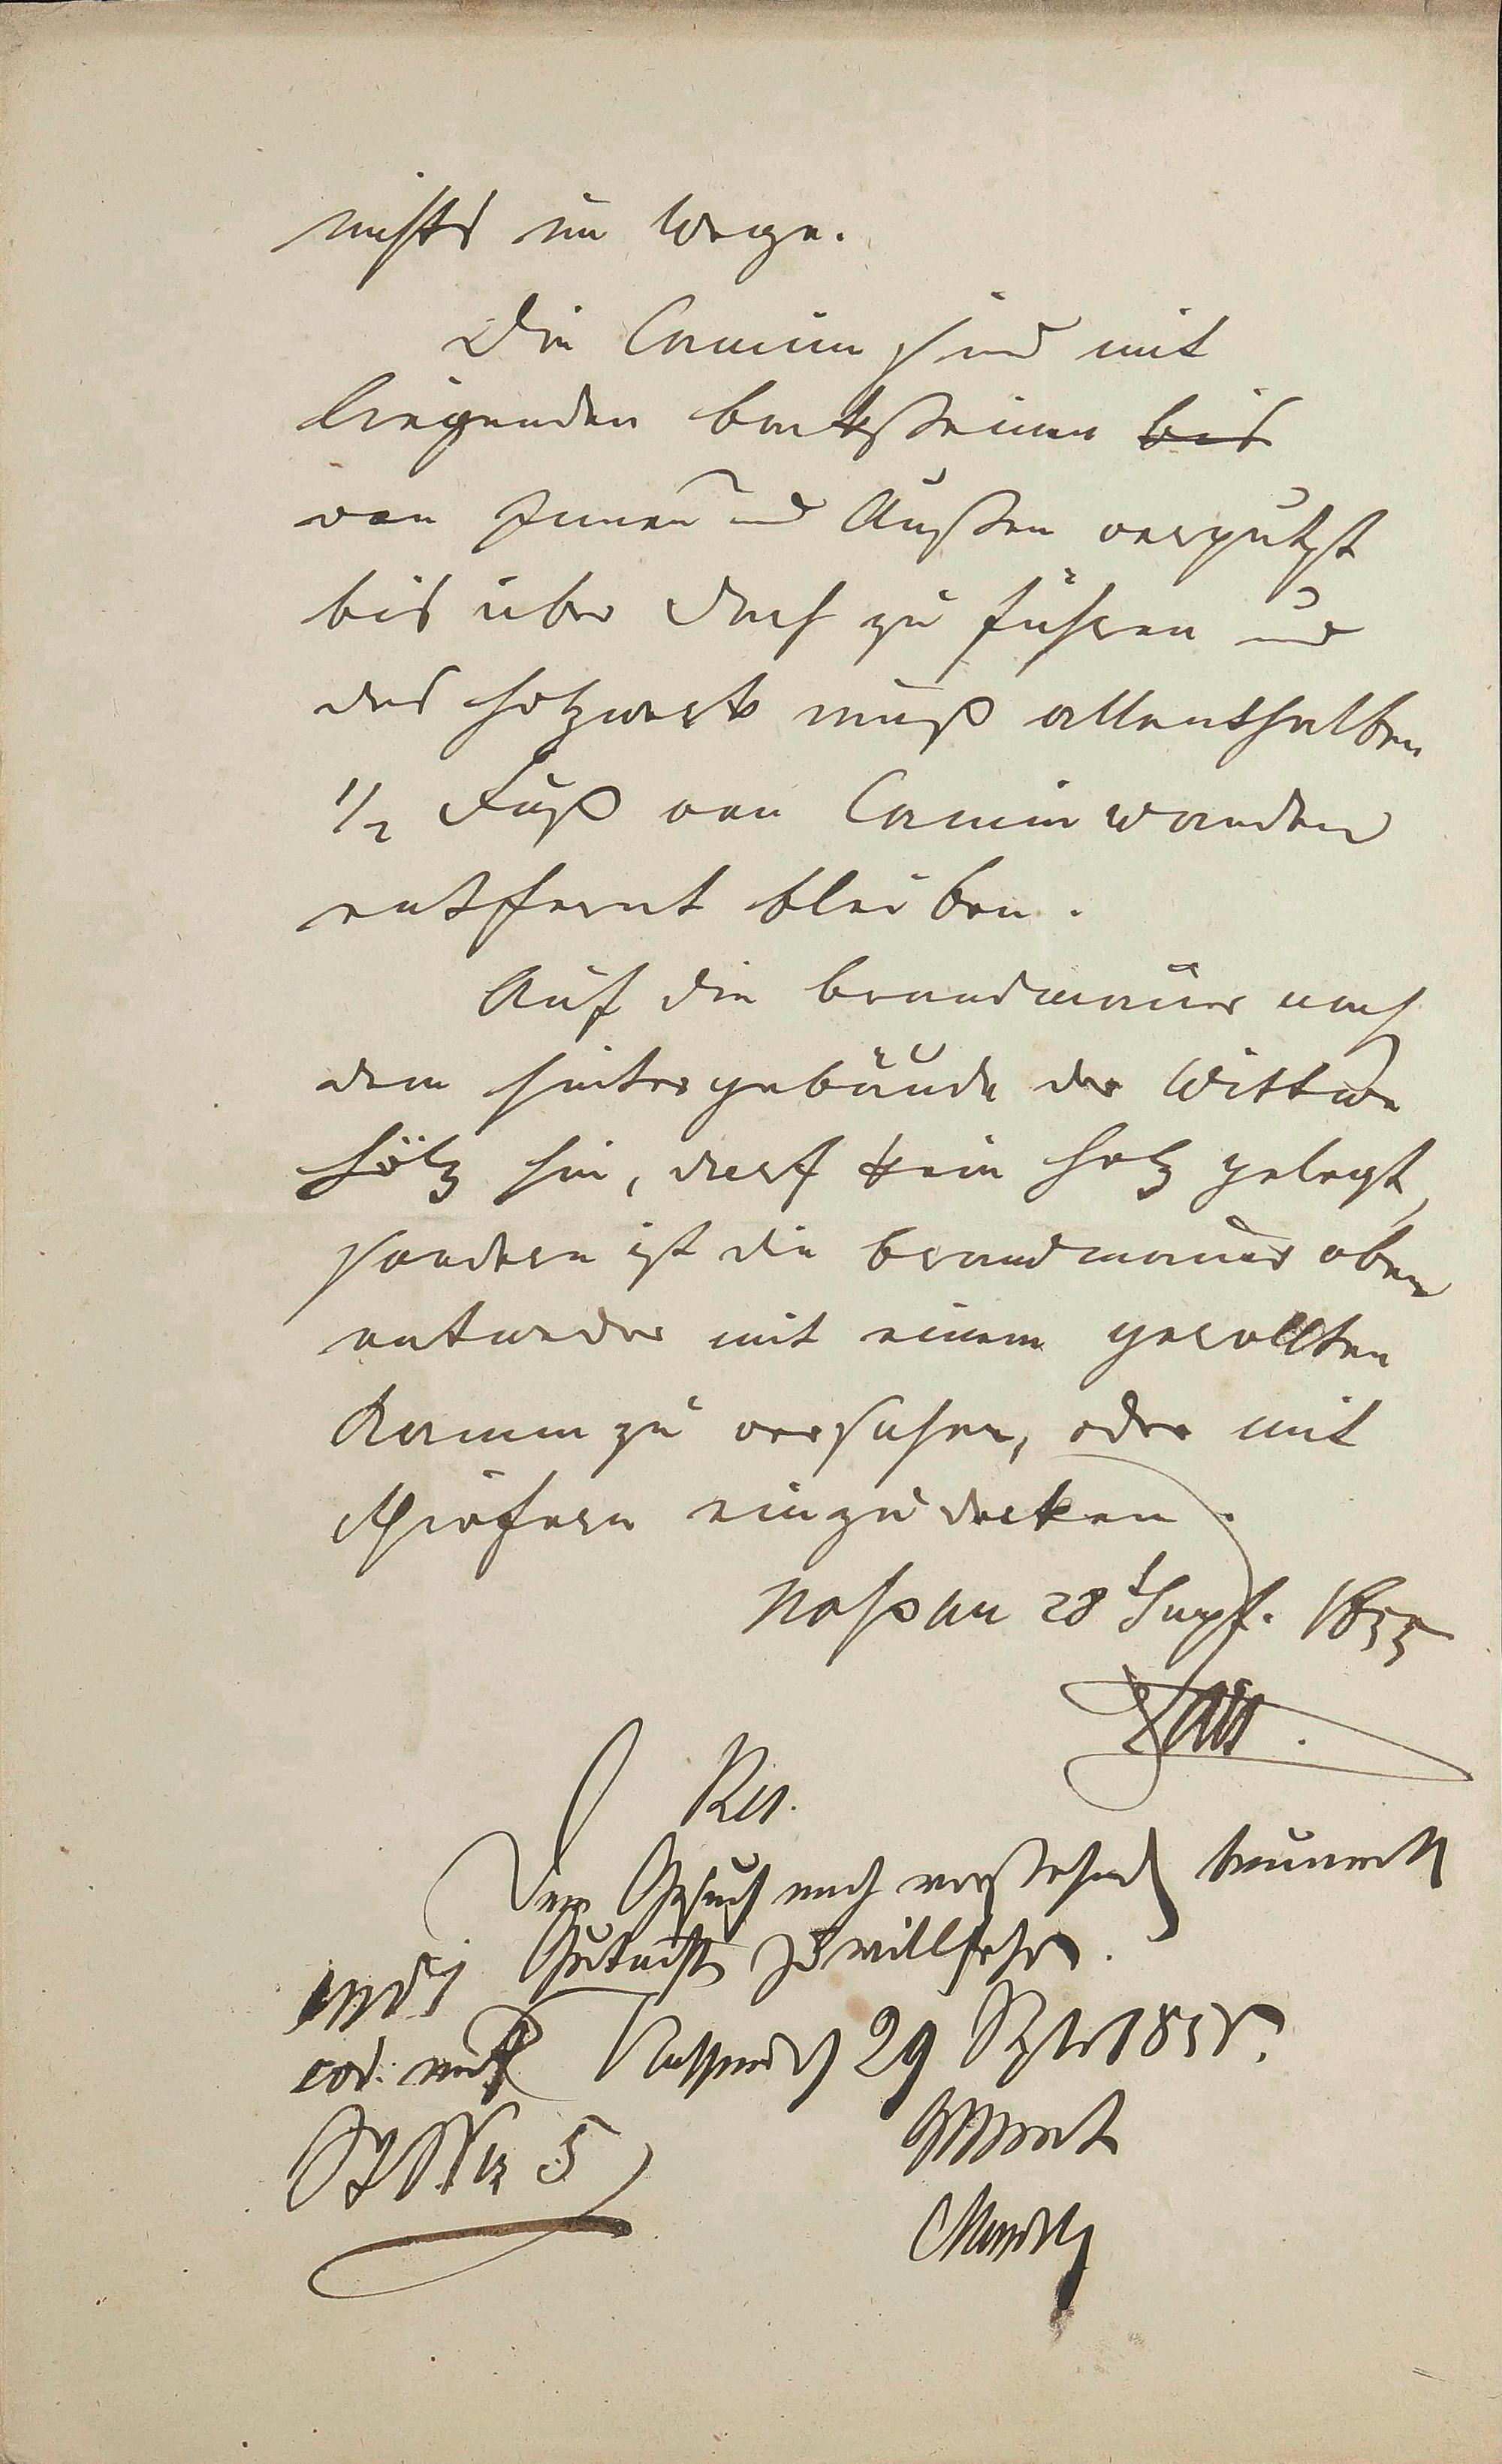 nichts im Wege.
Die Camine sind mit
liegenden Backsteinen bis
von Innen und Außen verputzt
bis über Dach zu führen und
das Holzwerk muß allenthalben
1/2 Fuß von Caminwanden
entfernt bleiben.
Auf die Brandmauer nach
dem Hintergebäude der Wittwe
Hölz hin, darf kein Holz gelegt,
sondern ist die Brandmauer oben
entweder mit einem gerollten
Kamm zu versehen, oder mit
Schiefern einzudecken.
Nassau 28t Sept. 1855
Res.
Dem Gesuch nach vorstehend
Gutachten zu willfahren.
29 Sptr 1855.
5